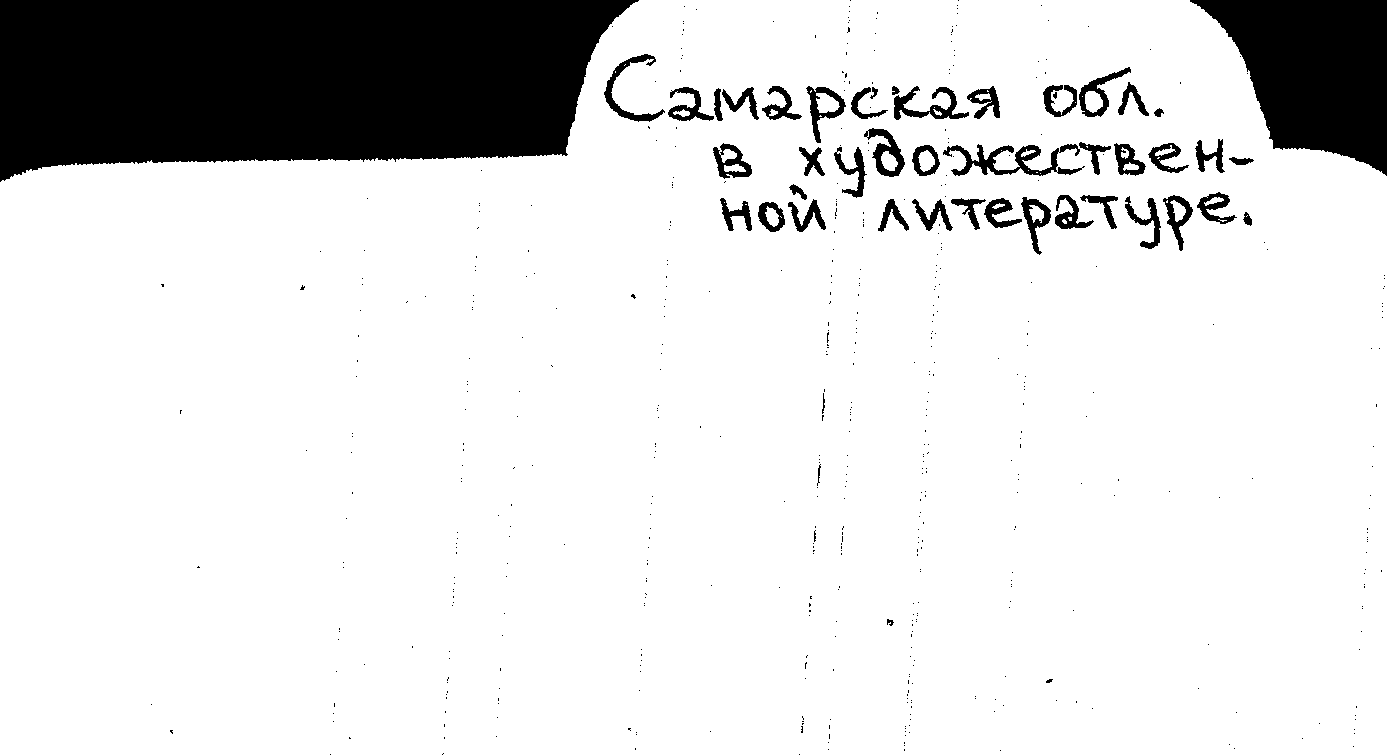 Самарская обл.
в художествен-
ной литературе.